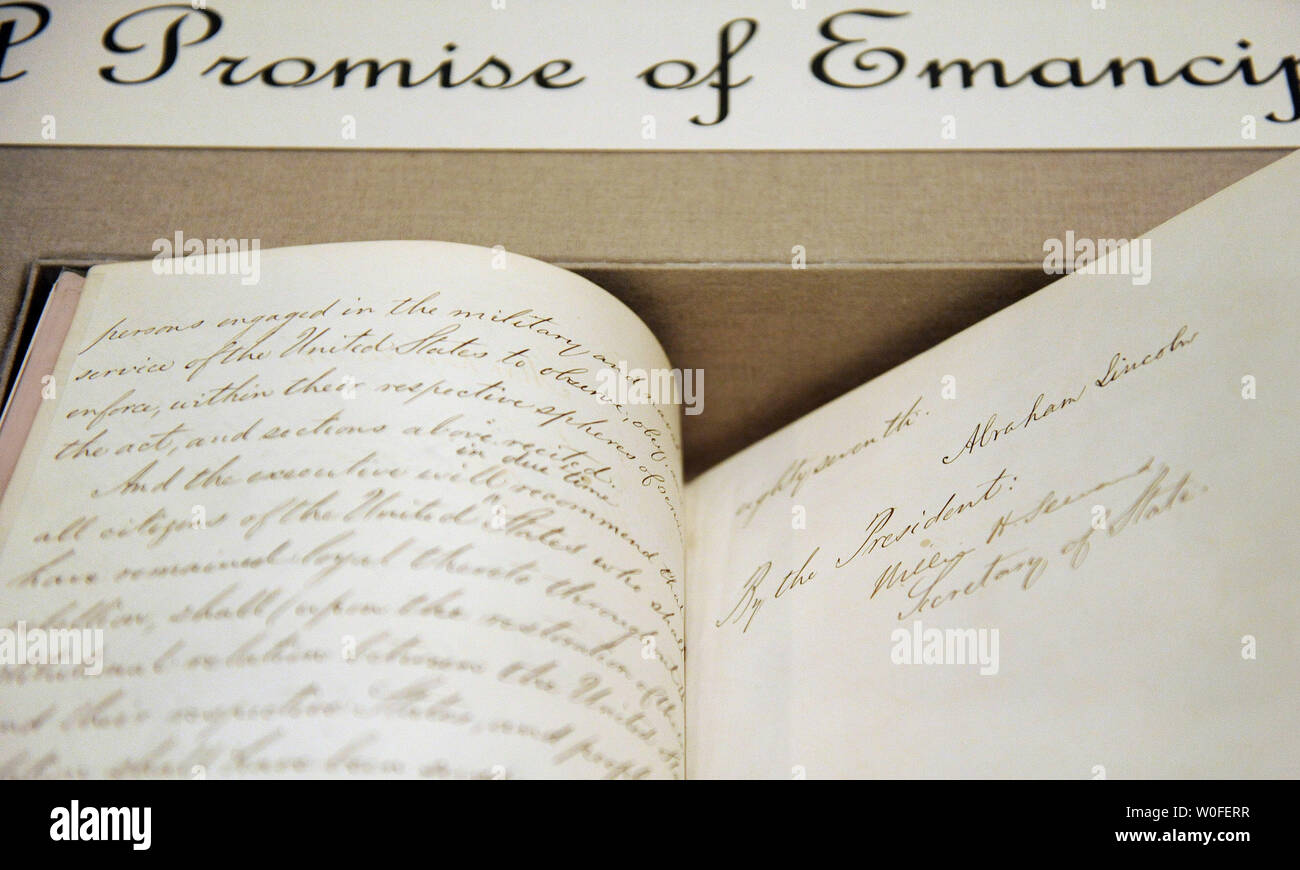 Promise of Emancip
persons engaged in the military and nav
service of the United States to observe, obey, 
enforce, within their respective spheres of
the act, and sections above recited.
in due time
And the executive will recommend that
all citizens of the United States who sha
have remained loyal thereto through
bellion, shall (upon the restoration of the
relation between the United
and their respective States, and peopl
shall have been
eighty seventh.
Abraham Lincoln
By the President:
William H Seward
Secretary of State.
a alamy
alamy
Image ID: W0FERR
www.alamy.com